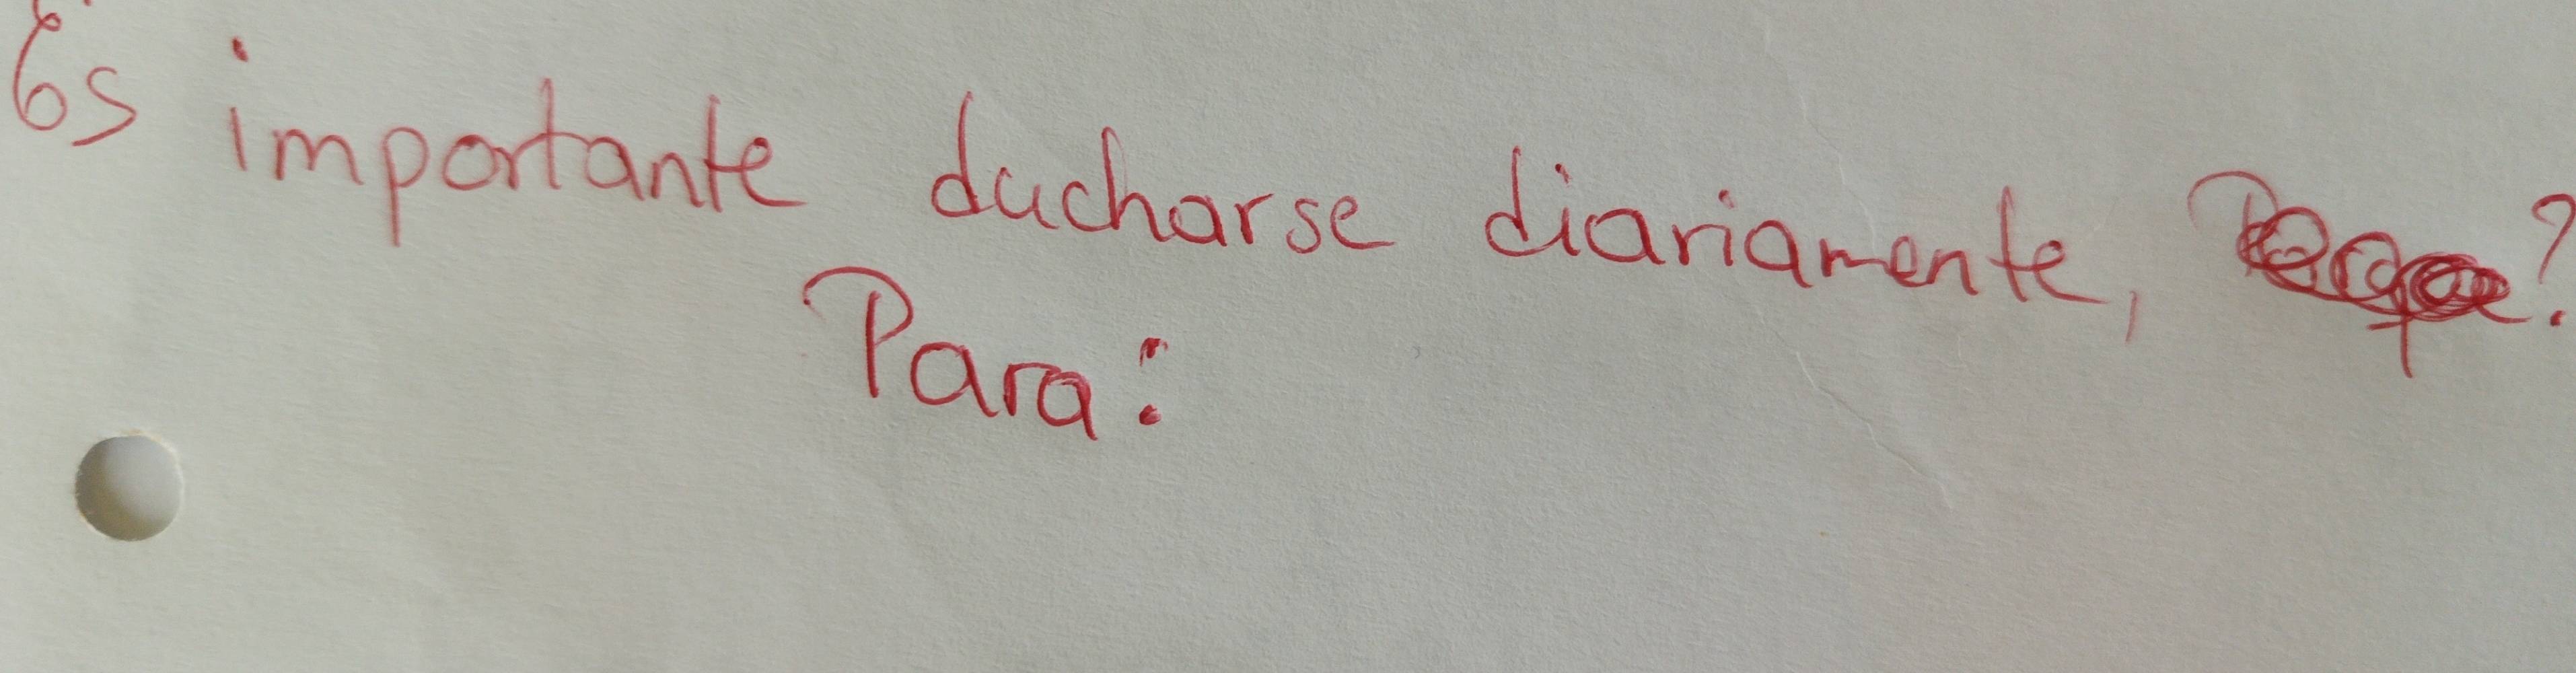 Es importante ducharse diariamente, ?
Para: